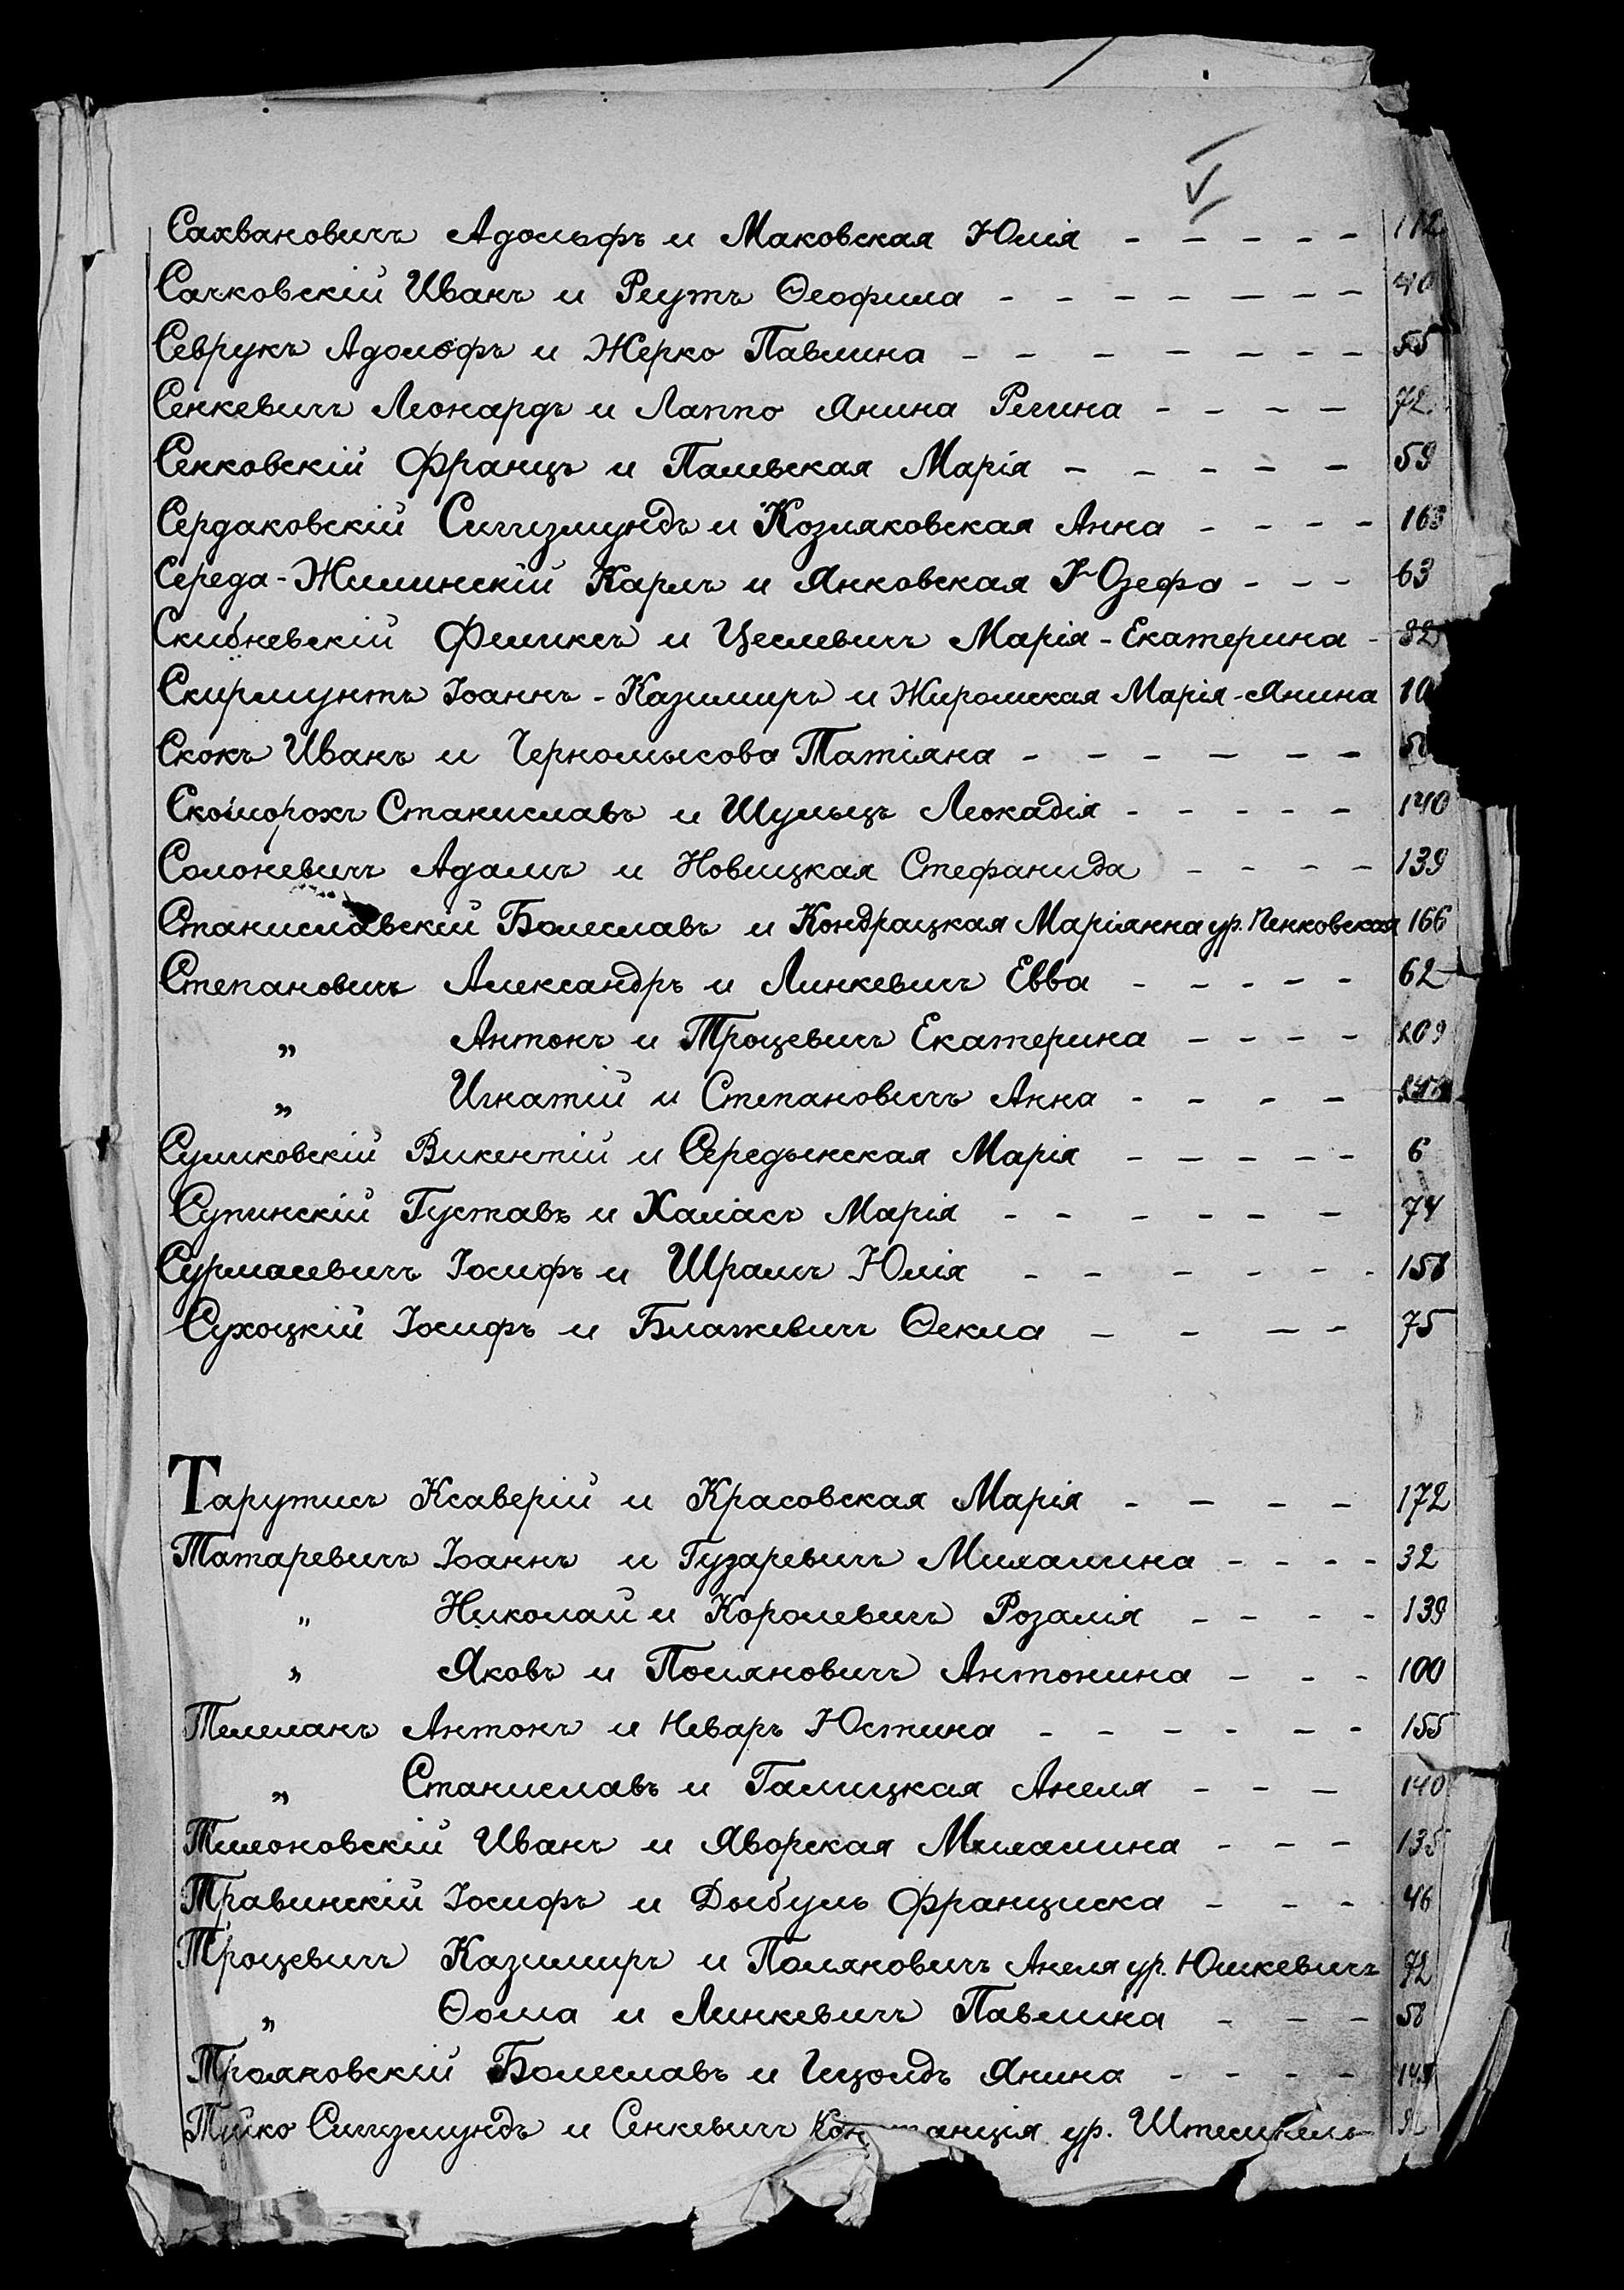 Сахвановичъ Адольфъ и Маковская Юлія - - - - - 112
Сачковскій Иванъ и Реутъ Ѳеофила - - - - - - -
Севрукъ Адольфъ и Жерко Павлина - - - - - - - 55
Сенкевичъ Леонардъ и Лаппо Янина Регина - - - - 72
Сенковскій Францъ и Пальвская Марія - - - - - 59
Сердаковскій Сигизмундъ и Козляковская Анна - - - - 163
Середа-Жилинскій Карлъ и Янковская Юзефа - - - 63
Скибневскій Феликсъ и Цеслевичъ Марія-Екатерина - 32
Скирмунтъ Іоаннъ-Казимиръ и Жиромская Марія-Янина 10
Скокъ Иванъ и Черномысова Татіяна - - - - - -
Скоморохъ Станиславъ и Шульцъ Леокадія - - - - - 140
Солоневичъ Адамъ и Новицкая Стефанида - - - - 139
Станиславскій Болеславъ и Кондрацкая Маріянна ур. Пенковская 166
Степановичъ Александръ и Линкевичъ Евва - - - - - 62
„ Антонъ и Троцевичъ Екатерина - - - - 109
„ Игнатій и Степановичъ Анна - - - -
Сулиховскій Викентій и Середынская Марія - - - - - 6
Супинскій Густавъ и Халясъ Марія - - - - - - 74
Сурмасевичъ Іосифъ и Шрамъ Юлія - - - - - - - 158
Сухоцкій Іосифъ и Блажевичъ Ѳекла - - - - 75
Тарутисъ Ксаверій и Красовская Марія - - - - 172
Татаревичъ Іоаннъ и Гузаревичъ Михалина - - - - 32
„ Николай и Королевичъ Розалія - - - - 139
„ Яковъ и Послновичъ Антонина - - - 100
Телеманъ Антонъ и Неваръ Юстина - - - - - - 155
„ Станиславъ и Галицкая Анеля - - - 140
Тимоновскій Иванъ и Яворская Михалина - - - 135
Травинскій Іосифъ и Дыбуль Франциска - - - 46
Троцевичъ Казимиръ и Поляновичъ Анеля ур. Юшкевичъ 72
„ Ѳома и Линкевичъ Павлина - - - 58
Трояновскій Болеславъ и Гицольдъ Янина - - - -
Туйко Сигизмундъ и Сенкевичъ ур.